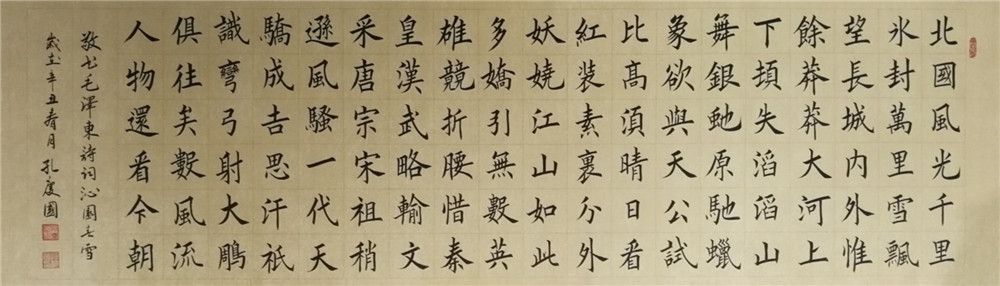 北國風光千里
氷封萬里雪飄
望長城内外惟
餘莽莽大河上
下頓失滔滔山
舞銀虵原馳蠟
象欲與天公試
比髙須晴日看
紅装素裹分外
妖嬈江山如此
多嬌引無數英
雄競折腰惜秦
皇漢武略輸文
采唐宗宋祖稍
遜風騷一代天
驕成吉思汗祇
識彎弓射大鵰
俱往矣數風流
人物還看今朝
敬书毛澤東詩词沁園春雪
歲在辛丑春月孔慶國